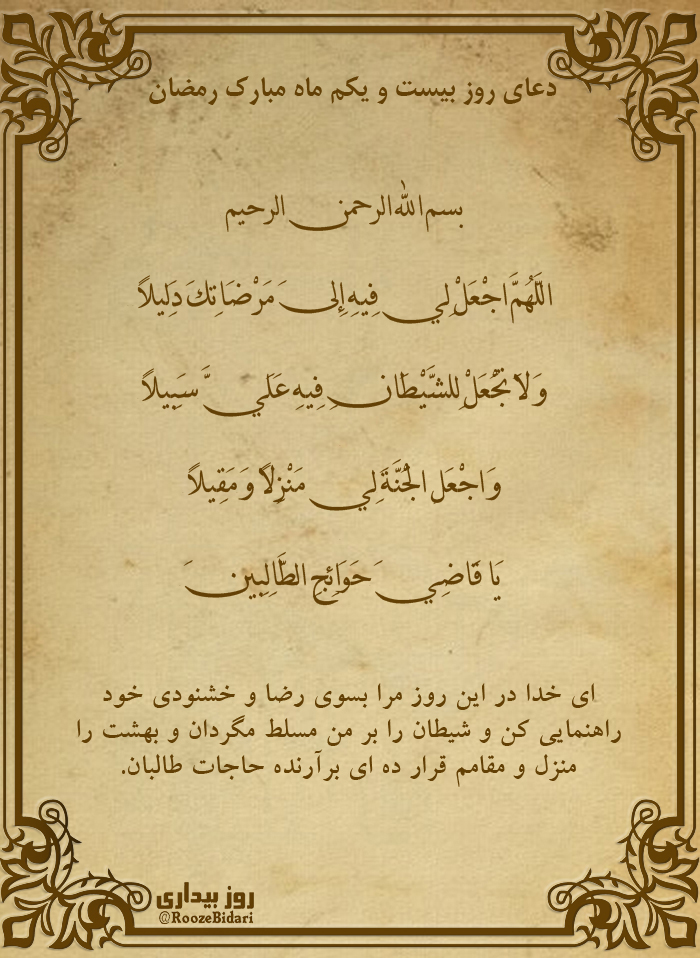 دعای روز بیست و یکم ماه مبارک رمضان
بسم الله الرحمن الرحیم
اللَّهُمَّ اجْعَلْ لِي فِيهِ إِلَى مَرْضَاتِكَ دَلِيلاً
وَ لاَ تَجْعَلْ لِلشَّيْطَانِ فِيهِ عَلَيَّ سَبِيلاً
وَ اجْعَلِ الْجَنَّةَ لِي مَنْزِلاً وَ مَقِيلاً
يَا قَاضِيَ حَوَائِجِ الطَّالِبِينَ
ای خدا در این روز مرا بسوی رضا و خشنودی خود
راهنمایی کن و شیطان را بر من مسلط مگردان و بهشت را
منزل و مقامم قرار ده ای برآرنده حاجات طالبان.
روز بیداری
@RoozeBidari